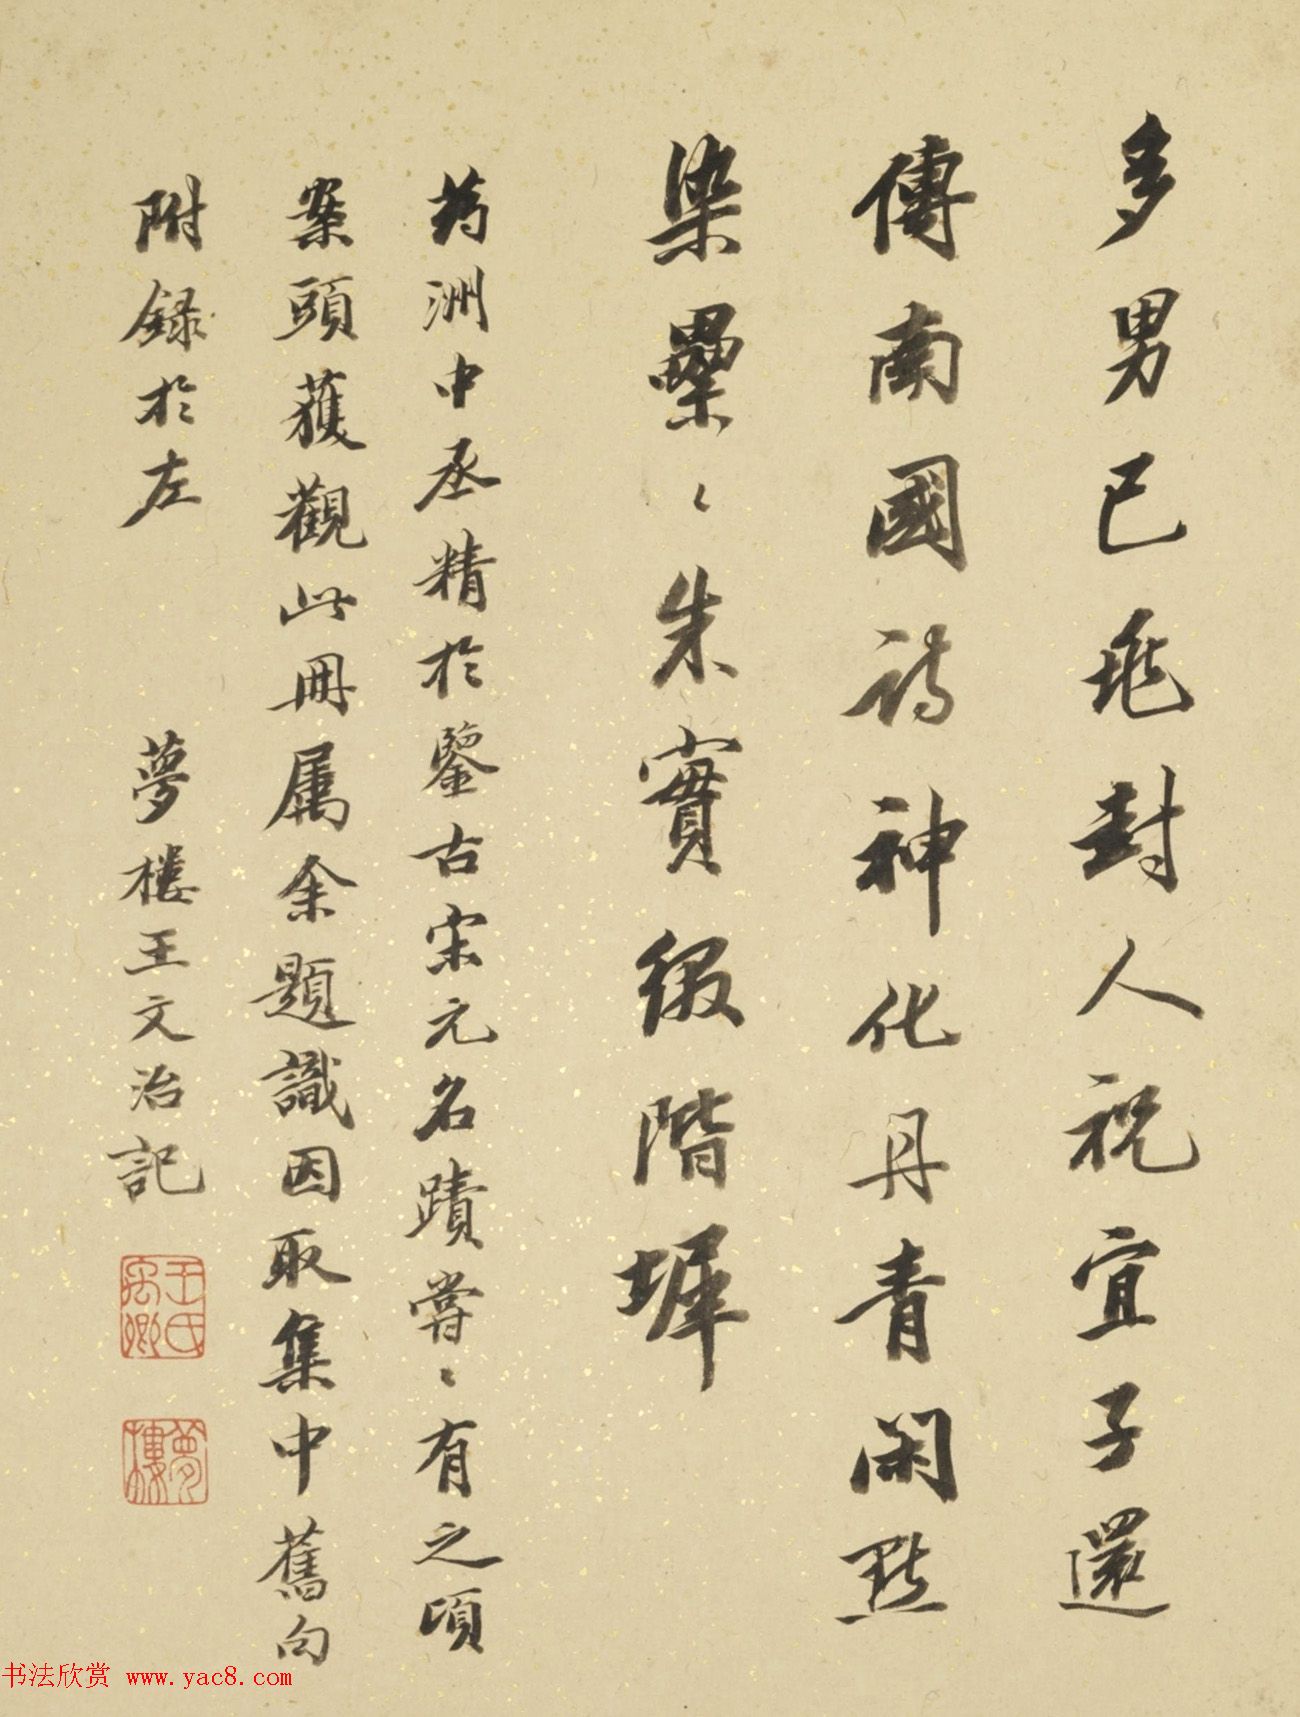 多男已兆封人祝宜子還
傳南國詩神化丹青閑點
染纍〻朱實綴階墀
葯洲中丞精於鑒古宋元名蹟嘗〻有之頃
案頭獲觀此冊属余題識因取集中舊句
附録於左 夢樓王文治記
王氏禹卿
夢樓
书法欣赏 www.yac8.com